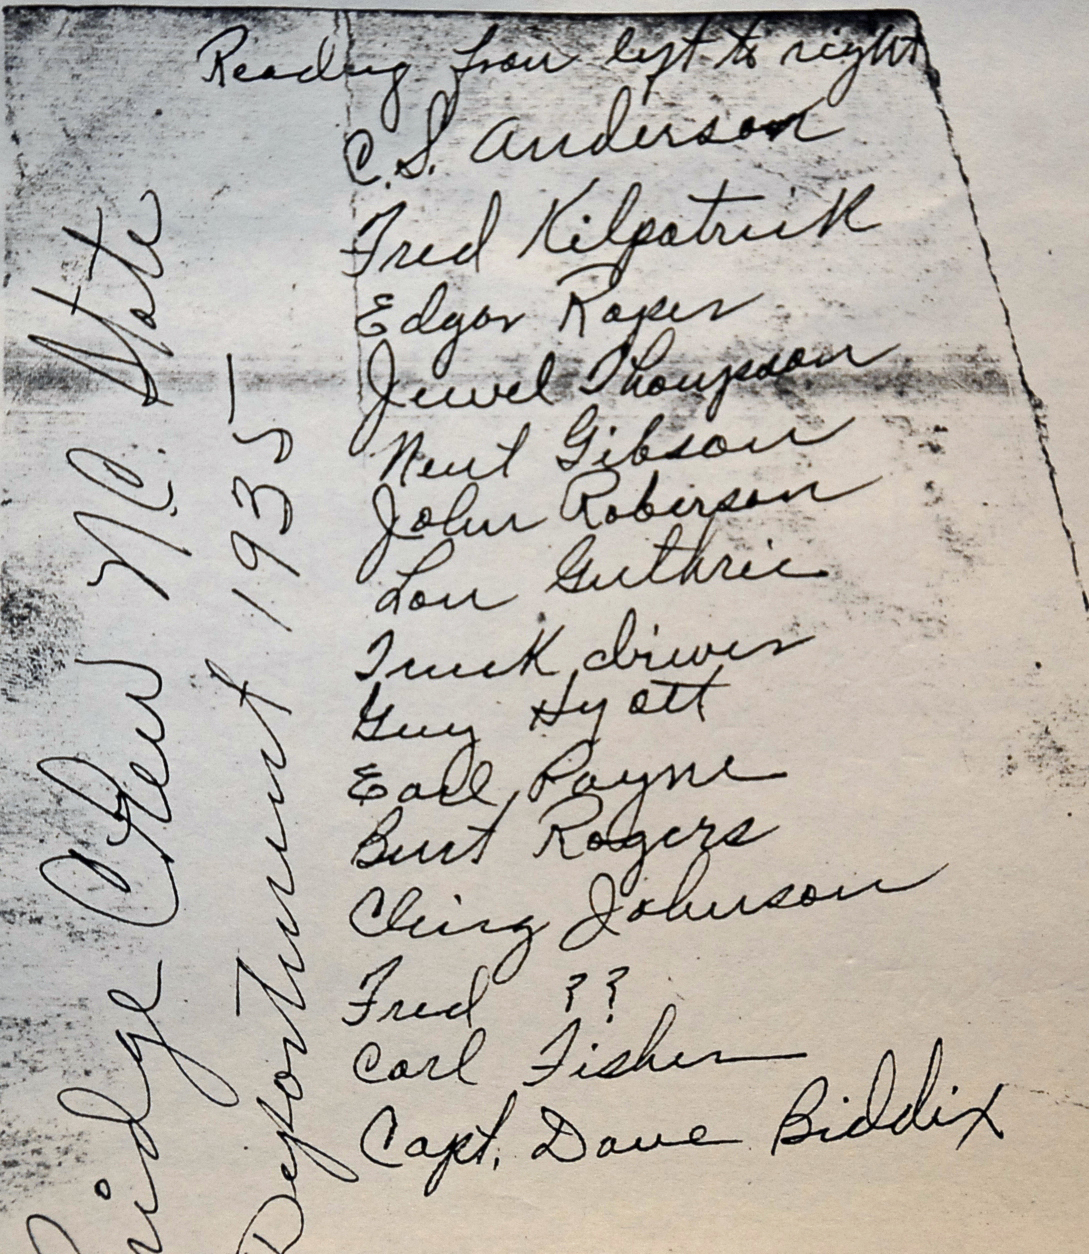 Reading from left to right
C.S. Anderson
Fred Kilpatrick
Edgar Roper
Jewel Thompson
Newt Gibson
John Roberson
Lon Guthrie
Truck driver
Guy Hyatt
Earl Payne
Burt Rogers
Cling Johnson
Fred ??
Carl Fisher
Capt. Dave Biddix
Bridge Crew N.C. State
Department 1935